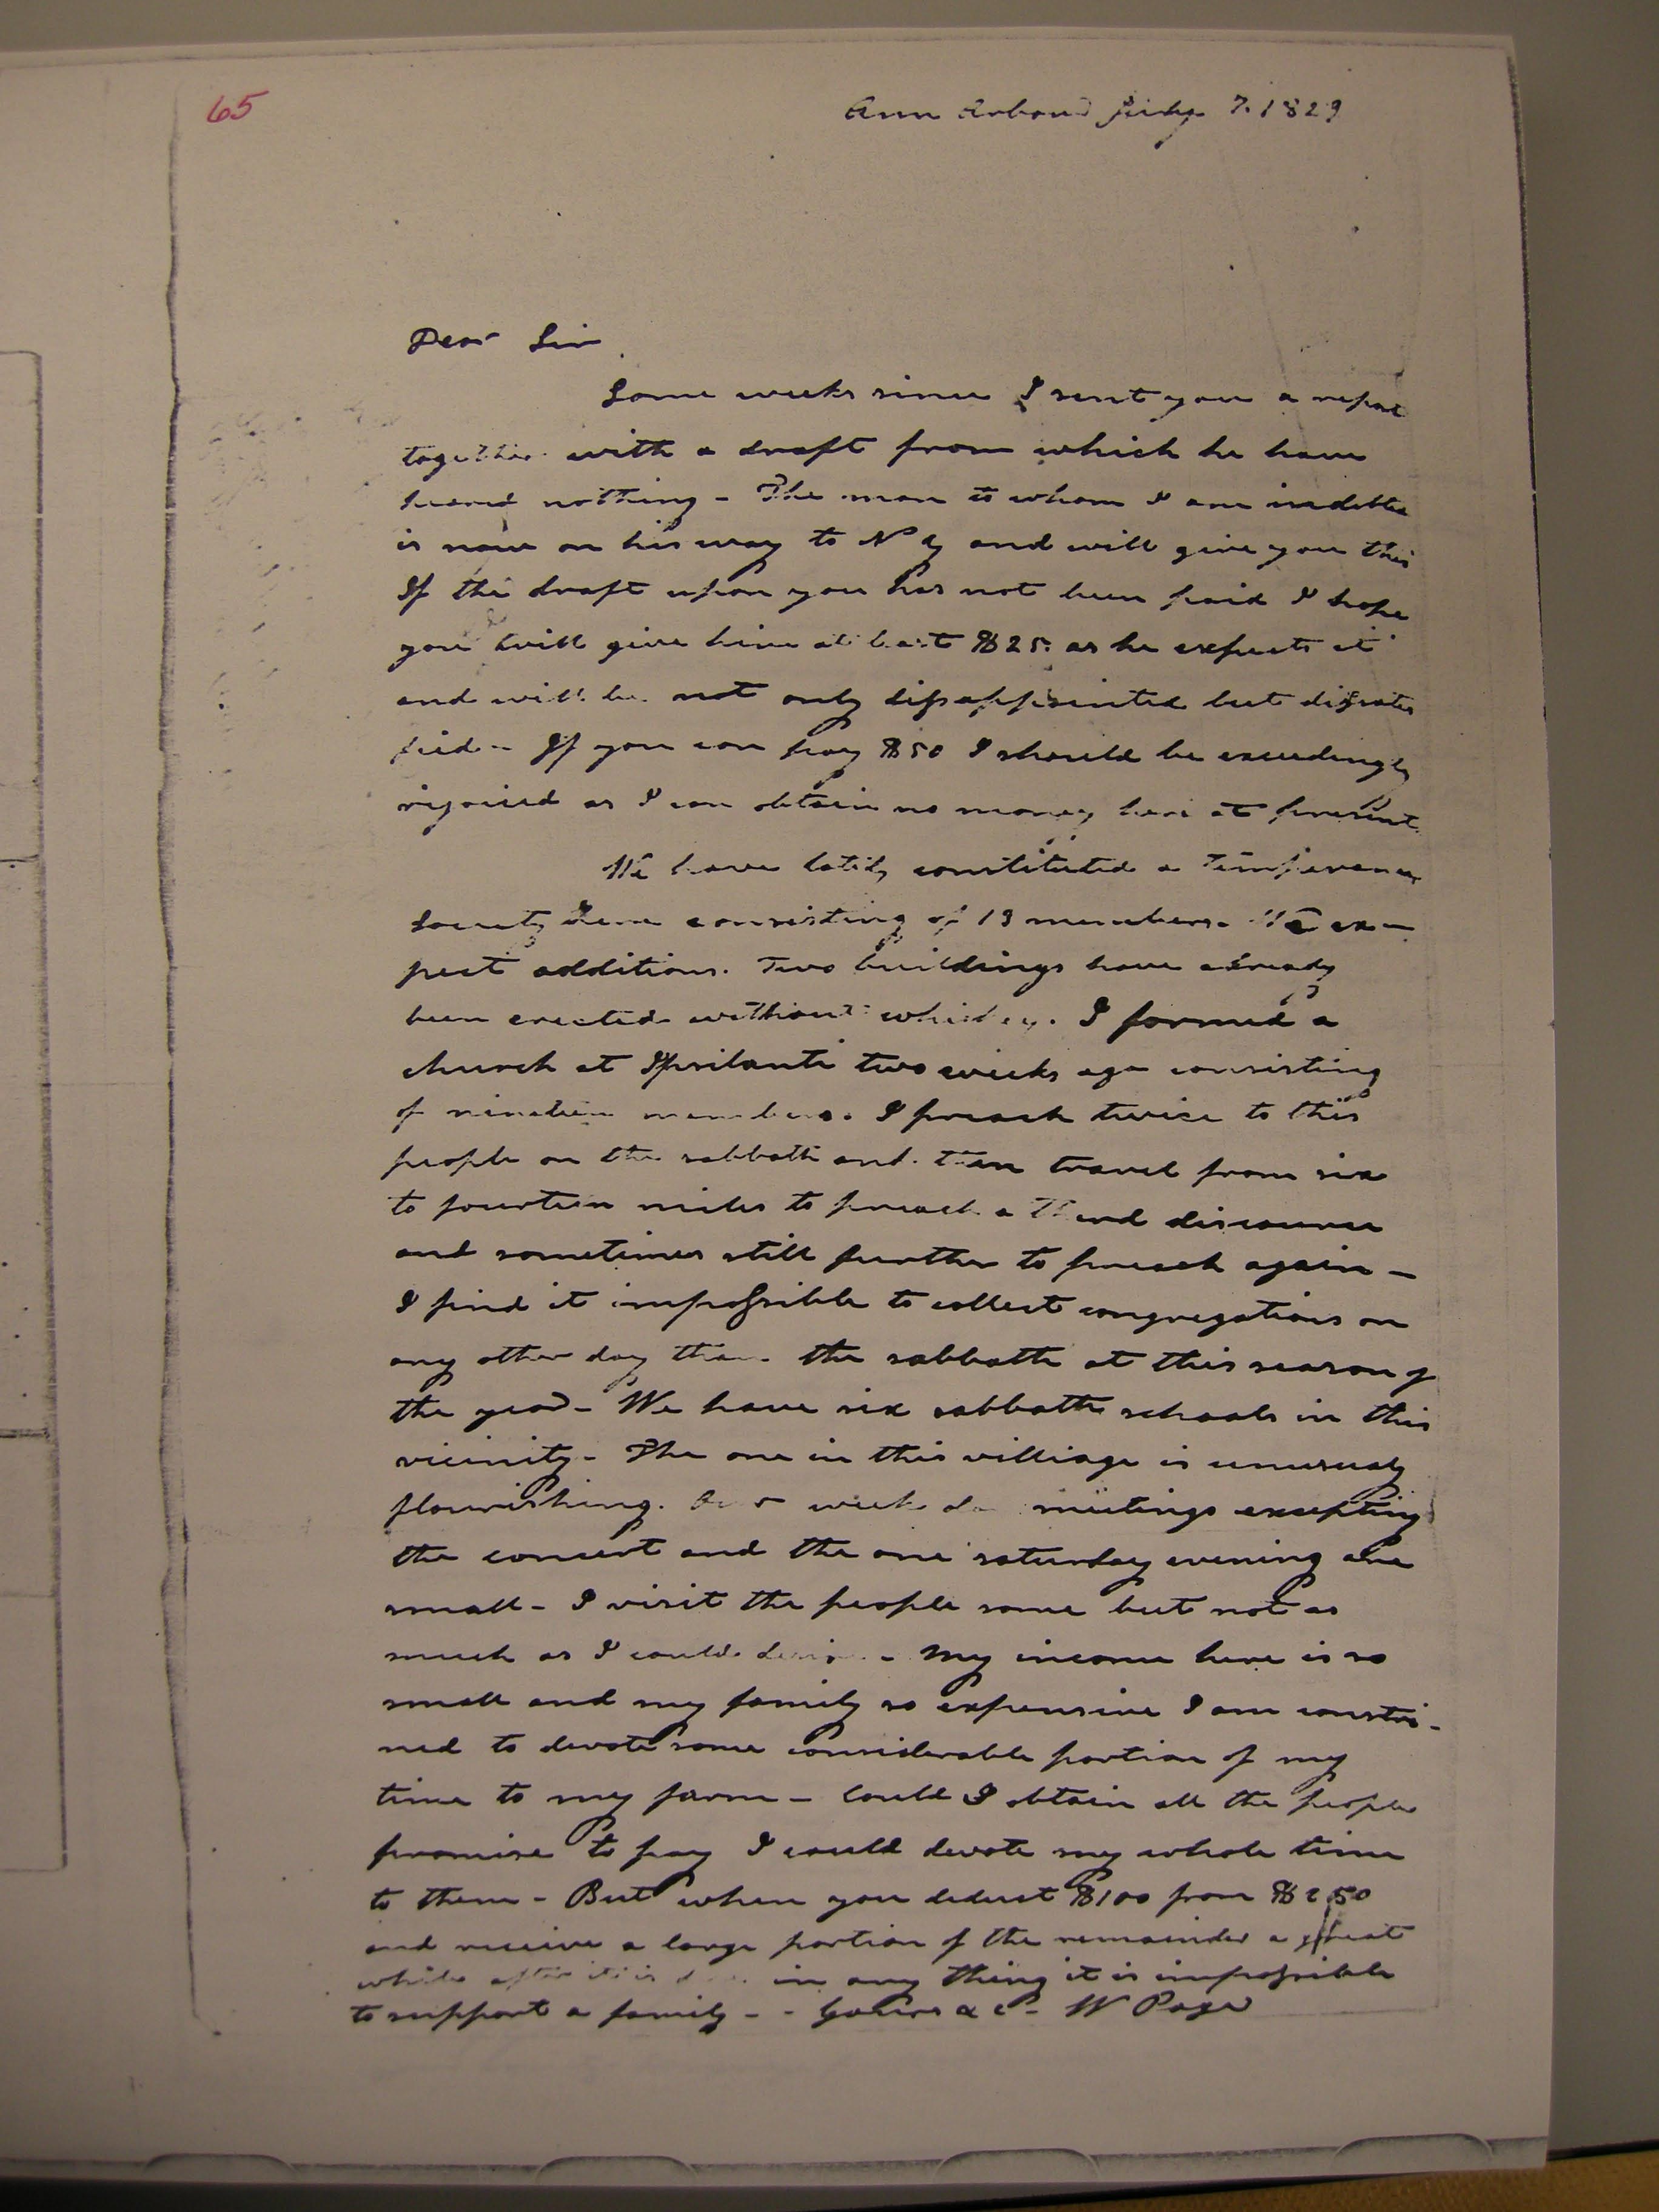 65
Ann Arbour July 7. 1829
Dear Sir
Some weeks since I sent you a report
together with a draft from which he have
heard nothing - The man to whom I am indebted
is now on his way to N Y and will give you this
If the draft upon you has not been paid I hope
you will give him at least $25. as he expects it
and will be not only dissappointed but dissatis
fied - If you can pay $50 I should be exceedingly
rejoiced as I can obtain no money here at present.
We have lately constituted a Temperance
Society here consisting of 13 members. We ex-
pect additions. Two buildings have already
been erected without whiskey. I formed a
church at Ypsilanti two weeks ago consisting
of nineteen members. I preach twice to this
people on the sabbath and then travel from six
to fourteen miles to preach a third discourse
and sometimes still further to preach again -
I find it impossible to collect congregations on
any other day than the sabbath at this season of
the year - We have six sabbath schools in this
vicinity - The one in this villiage is unusualy
flourishing. Our week day meetings excepting
the concert and the one saturday evening are
small - I visit the people some but not as
much as I could desire - My income here is so
small and my family so expensive I am constrai-
ned to devote some considerable portion of my
time to my farm - Could I obtain all the people
promise to pay I could devote my whole time
to them - But when you deduct $100 from $250
and receive a large portion of the remainder a great
while after it is due in any thing it is impossible
to support a family - - Yours &c - W Page